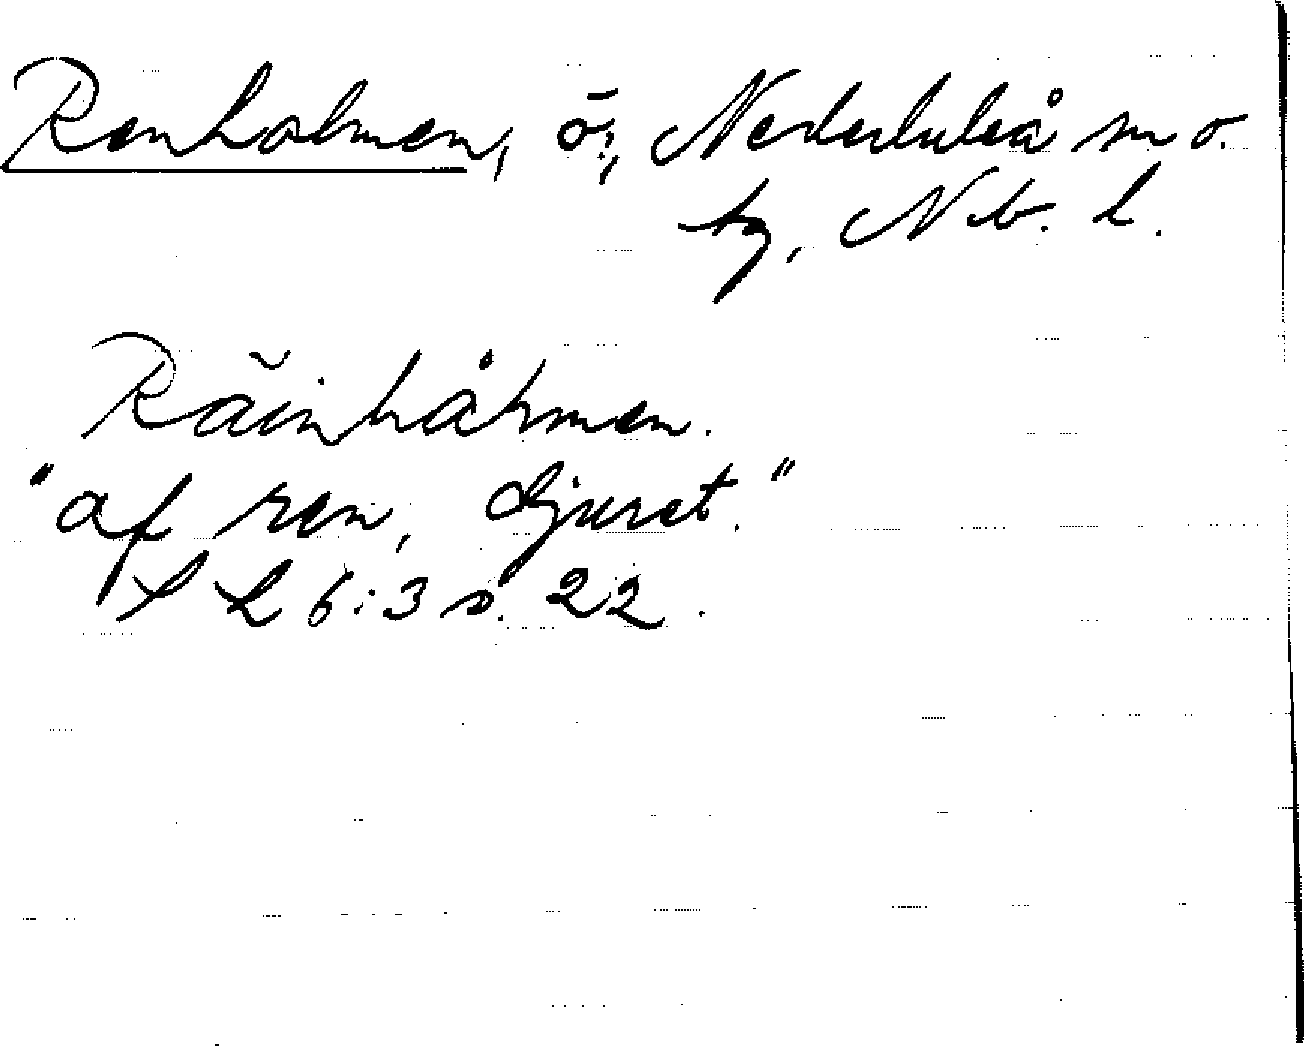 Renholmen, ö, Nederluleå sn o.
tg, Nb. l.
Räinhåhmen.
"af ren, djuret."
SL 6:3 s. 22.